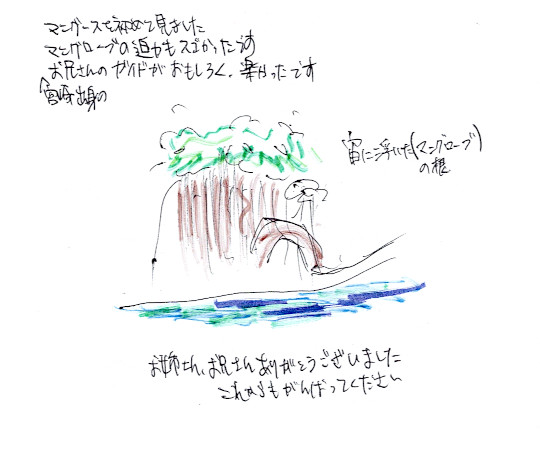 マングースを初めて見ました
マングローブの迫力もスゴかったです
お兄さんのガイドがおもしろく、楽しかったです
宮崎出身の
宙に浮いた(マングローブ)
の根
お姉さん、お兄さんありがとうございました
これからもがんばってください